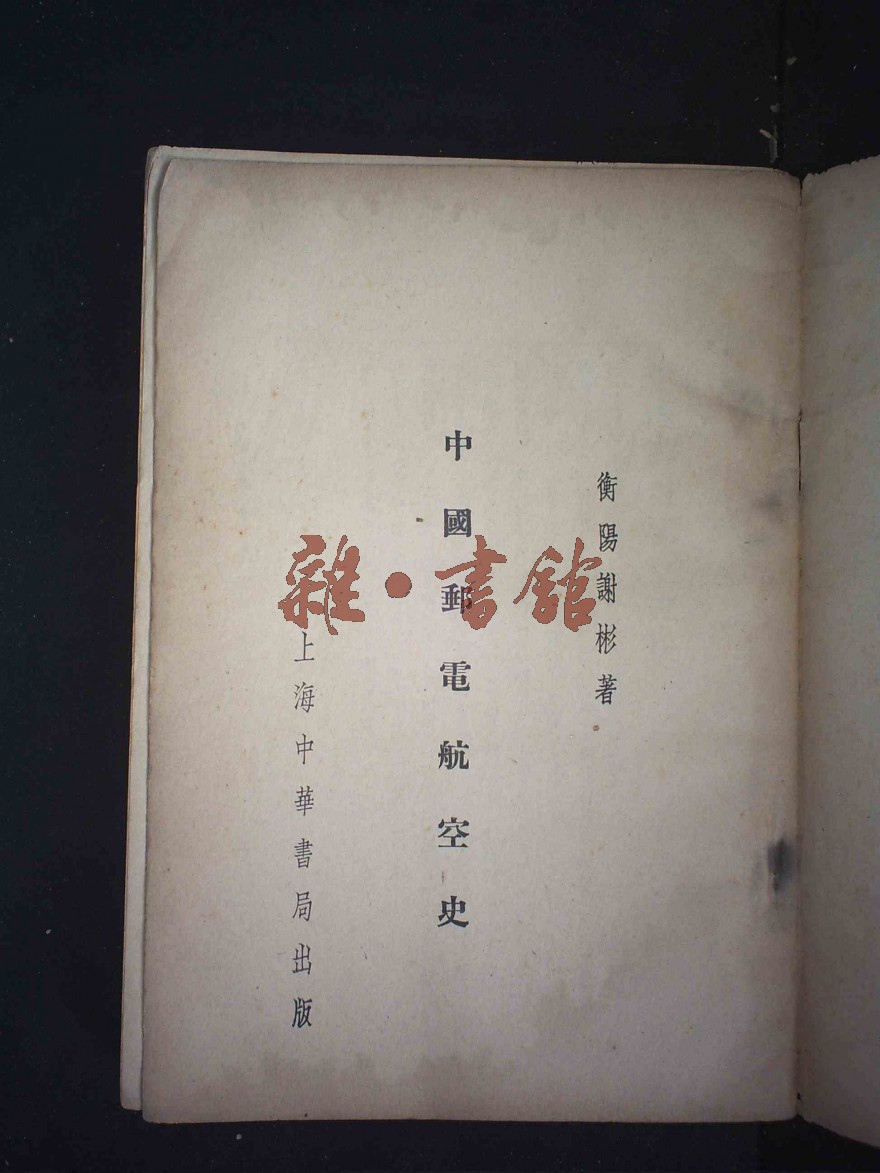 衡陽謝彬著
中國郵電航空史
上海中華書局出版
雜·書館